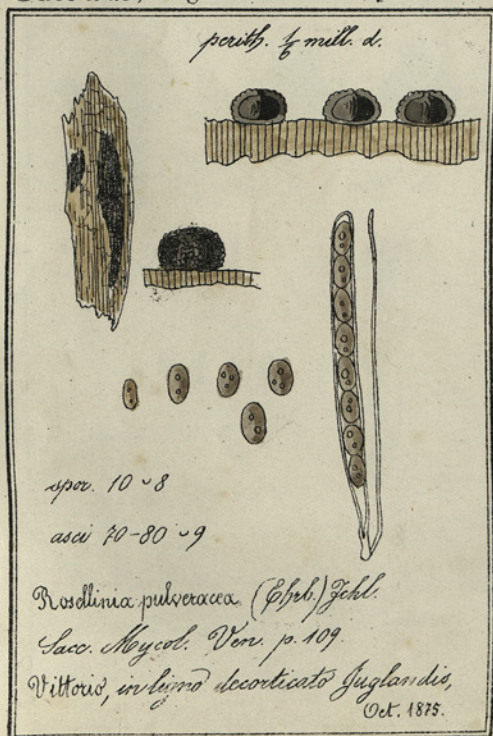 perith. 1/6 mill. d.
spor. 10 ᴗ 8
asci 70-80 ᴗ 9
Rosellinia pulveracea (Ehrb.) Fchl.
Sacc. Mycol. Ven. p. 109.
Vittorio, in ligno decorticato Juglandis,
Oct. 1875.